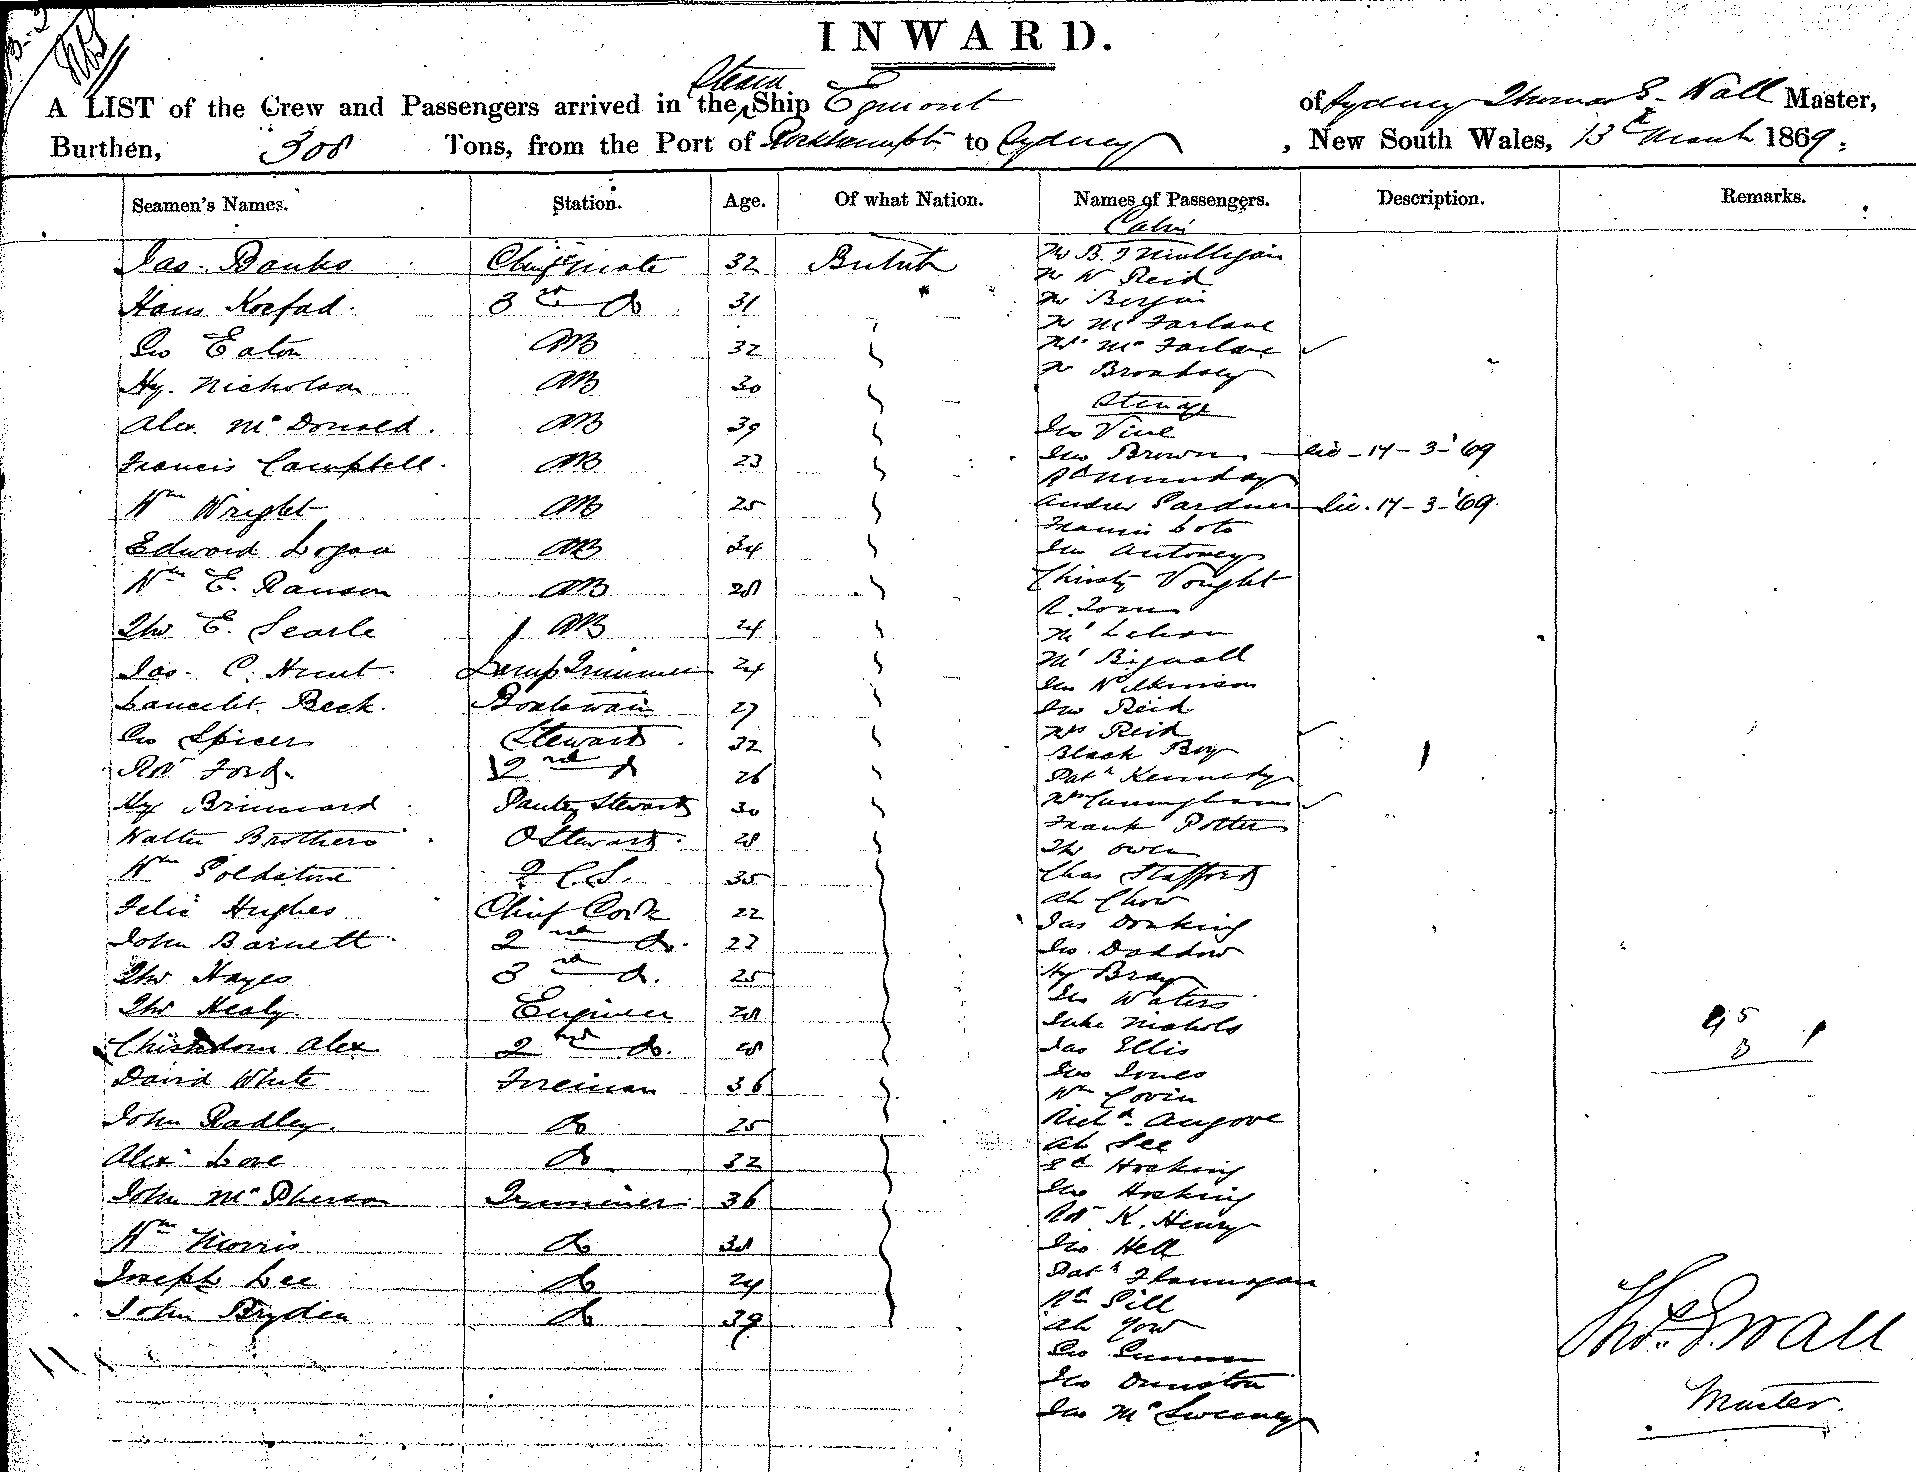 INWARD.
A LIST of the Crew and Passengers arrived in the Steam Ship Egmont of Sydney Thomas E. Wall Master,
Burthen, 308 Tons, from the Port of to Sydney, New South Wales, 13th March 1869.
Seamen's Names. Station. Age. Of what Nation. Names of Passengers. Description. Remarks.
Jas. Banks Chief mate 32 British
Hans 3rd Do 31
Geo Eaton AB 32
Hy. Nicholson AB 30
Alex McDonald. AB 39
Francis Campbell. AB 23
Wm Wright AB 25
Edward Logan AB 34
Wm E. Ranson AB 28
Thos E. Searle AB 24
Jas. C. Hunt. Lamp Trimmer 24
Lancelt. Beck. Boatswain 27
Geo Spicer Steward 32
Robt Ford. 2nd Do 26
Hy Brimard Pantry Steward 30
Walter Brothers Steward 28
Wm Goldstone 2 C.S. 35
Felix Hughes Chief Cook 22
John Barnett 2nd Do. 22
Thos Hayes 3rd Do. 25
Thos Healy Engineer 28
Chisholm Alex 2nd Do. 28
David White Fireman 36
John Radley. Do 25
Alexr Love Do 32
John McPherson Trimmer 36
Wm Morris Do 38
Joseph Lee Do 24
John Bryden Do 39
Cabin
Mr B. J Mulligan
Mr W Reid
Mr
Mr McFarlane
Mrs McFarlane
Mr
Steerage
Jno Vine
Jno Brown die - 14 - 3 - '69
Rd Munday
Andrew Gardner die. 14 - 3 - '69.
Francis
Jno Antoney
Christy Vought
Mr
Mr Bignall
Jno Wilkinson
Geo Reid
Mrs Reid
Black Boy
Patk Kennedy
Cunningham
Frank Potter
Thos Owen
Chas Stafford
Ah Chow
Jas
Jno.
Hy Bray
Jno Waters
Luke Nichols
Jas Ellis
Jno Jones
Wm
Richd. Angove
Ah See
Hocking
Jno Hocking
Robt K. Henry
Jno Hell
Patk Flannagan
Rd Gill
Ah Yow
Geo
Jno Dunston
Jno McSweeney
45
3
Thos. E. Wall
Master.